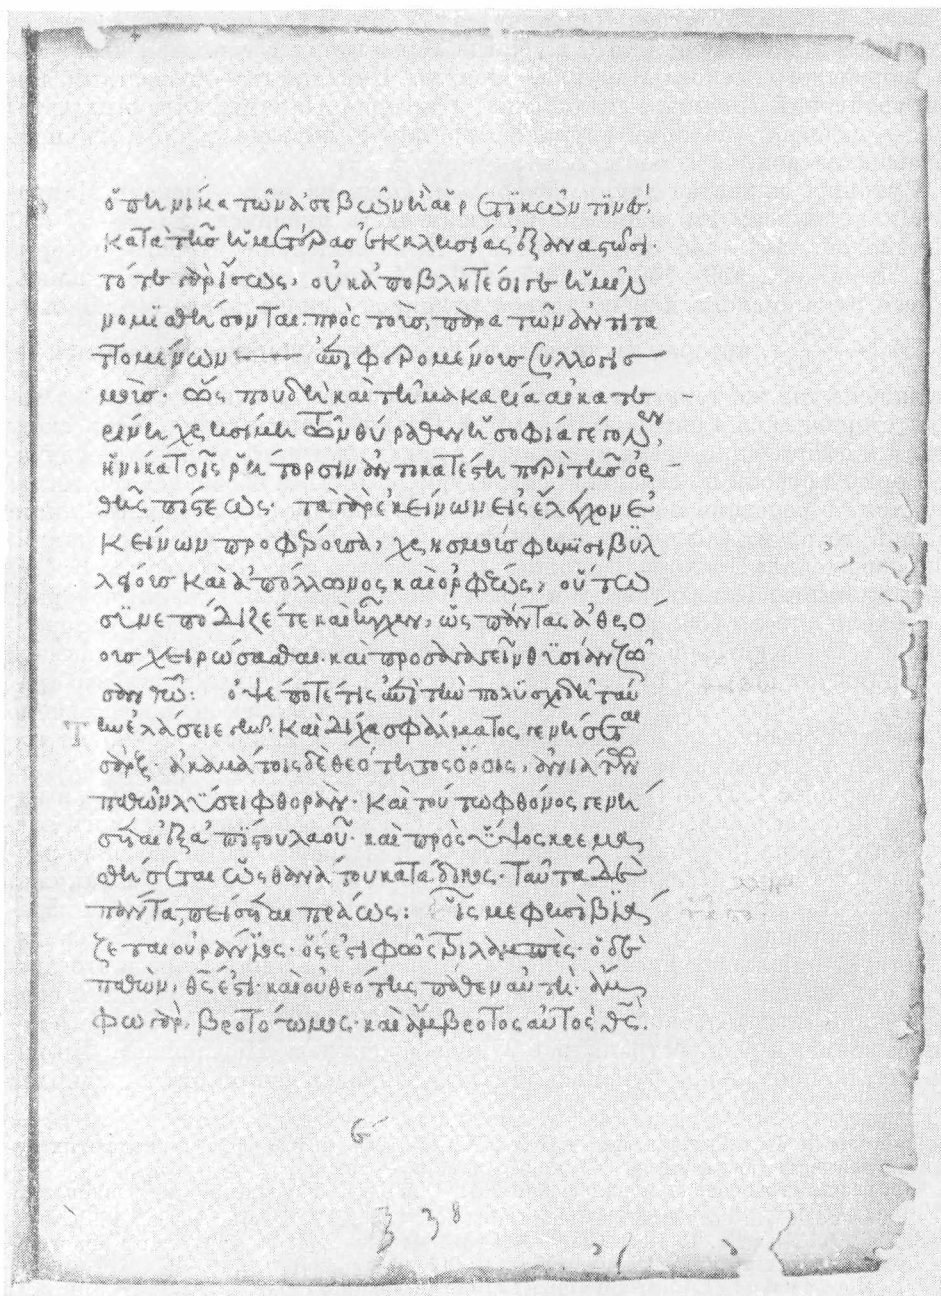 ὁπηνίκα τῶν ἀσεβῶν ἢ αἱρετικῶν τινὲς
κατὰ τῆς ἡμετέρας ἐκκλησίας ἐξαναστῶσι·
τότε γὰρ ἴσως, οὐκ ἀπόβλητέ οἵγε ἡμῖν
νομισθήσονται· πρὸς τοῖς, παρὰ τῶν ἀντιτα
ττομένων ἐπιφερομένοις συλλογισ
μοῖς. ὥς που δὴ καὶ τῆ μακαρία αἰκατε
ρίνη χρησίμη τῶν θύραθεν ἡ σοφία γέγονεν,
ἡνίκα τοῖς ῥήτορσιν ἀντικατέστη περὶ τῆς ὀρ
θῆς πίστεως· τὰ γὰρ ἐκείνων εἰς ἔλεγχον ἐ
κείνων προφέρουσα, χρησμοῖς φημϊ σιβυλ
λείοις καὶ ἀπόλλωνος καὶ ὀρφέως, οὕτω
συνεπόδιζέ τε καὶ ἦγχεν, ὡς πάντας ἀθέσ
ους χειρώσασθαι. καὶ προσαγαγεῖν θυσίαν ζῶ
σαν θῶ: ὀψέ ποτέ τις ἐπὶ τὴν πολυσχιδῆ ταύ
την ἐλάσειε γῆν. καὶ δίχα σφάλματος γενήσεται
σάρξ. ἀκαμάτοις δὲ θεότητος ὅροις, ἀνιάτων
παθῶν λύσει φθοράν. καὶ τούτω φθόνος γενή
σεται ἐξ ἀπίστου λαοῦ. καὶ πρὸς ὕψος κρεμα
σθήσεται ὡς θανάτου κατάδικος. ταῦτα δὲ
πάντα, πείσεται πράως: Εἷς με φησὶ βιά
ζεται οὐράνιος. ὅς ἐστι φῶς τριλαμπές. ὁ δὲ
παθὼν, θς ἐστι. καὶ οὐ θεότης πάθεν αὐτή. ἄμ
φω γὰρ, βροτόσωμος. καὶ ἄμβροτος αὐτὸς θς.
38